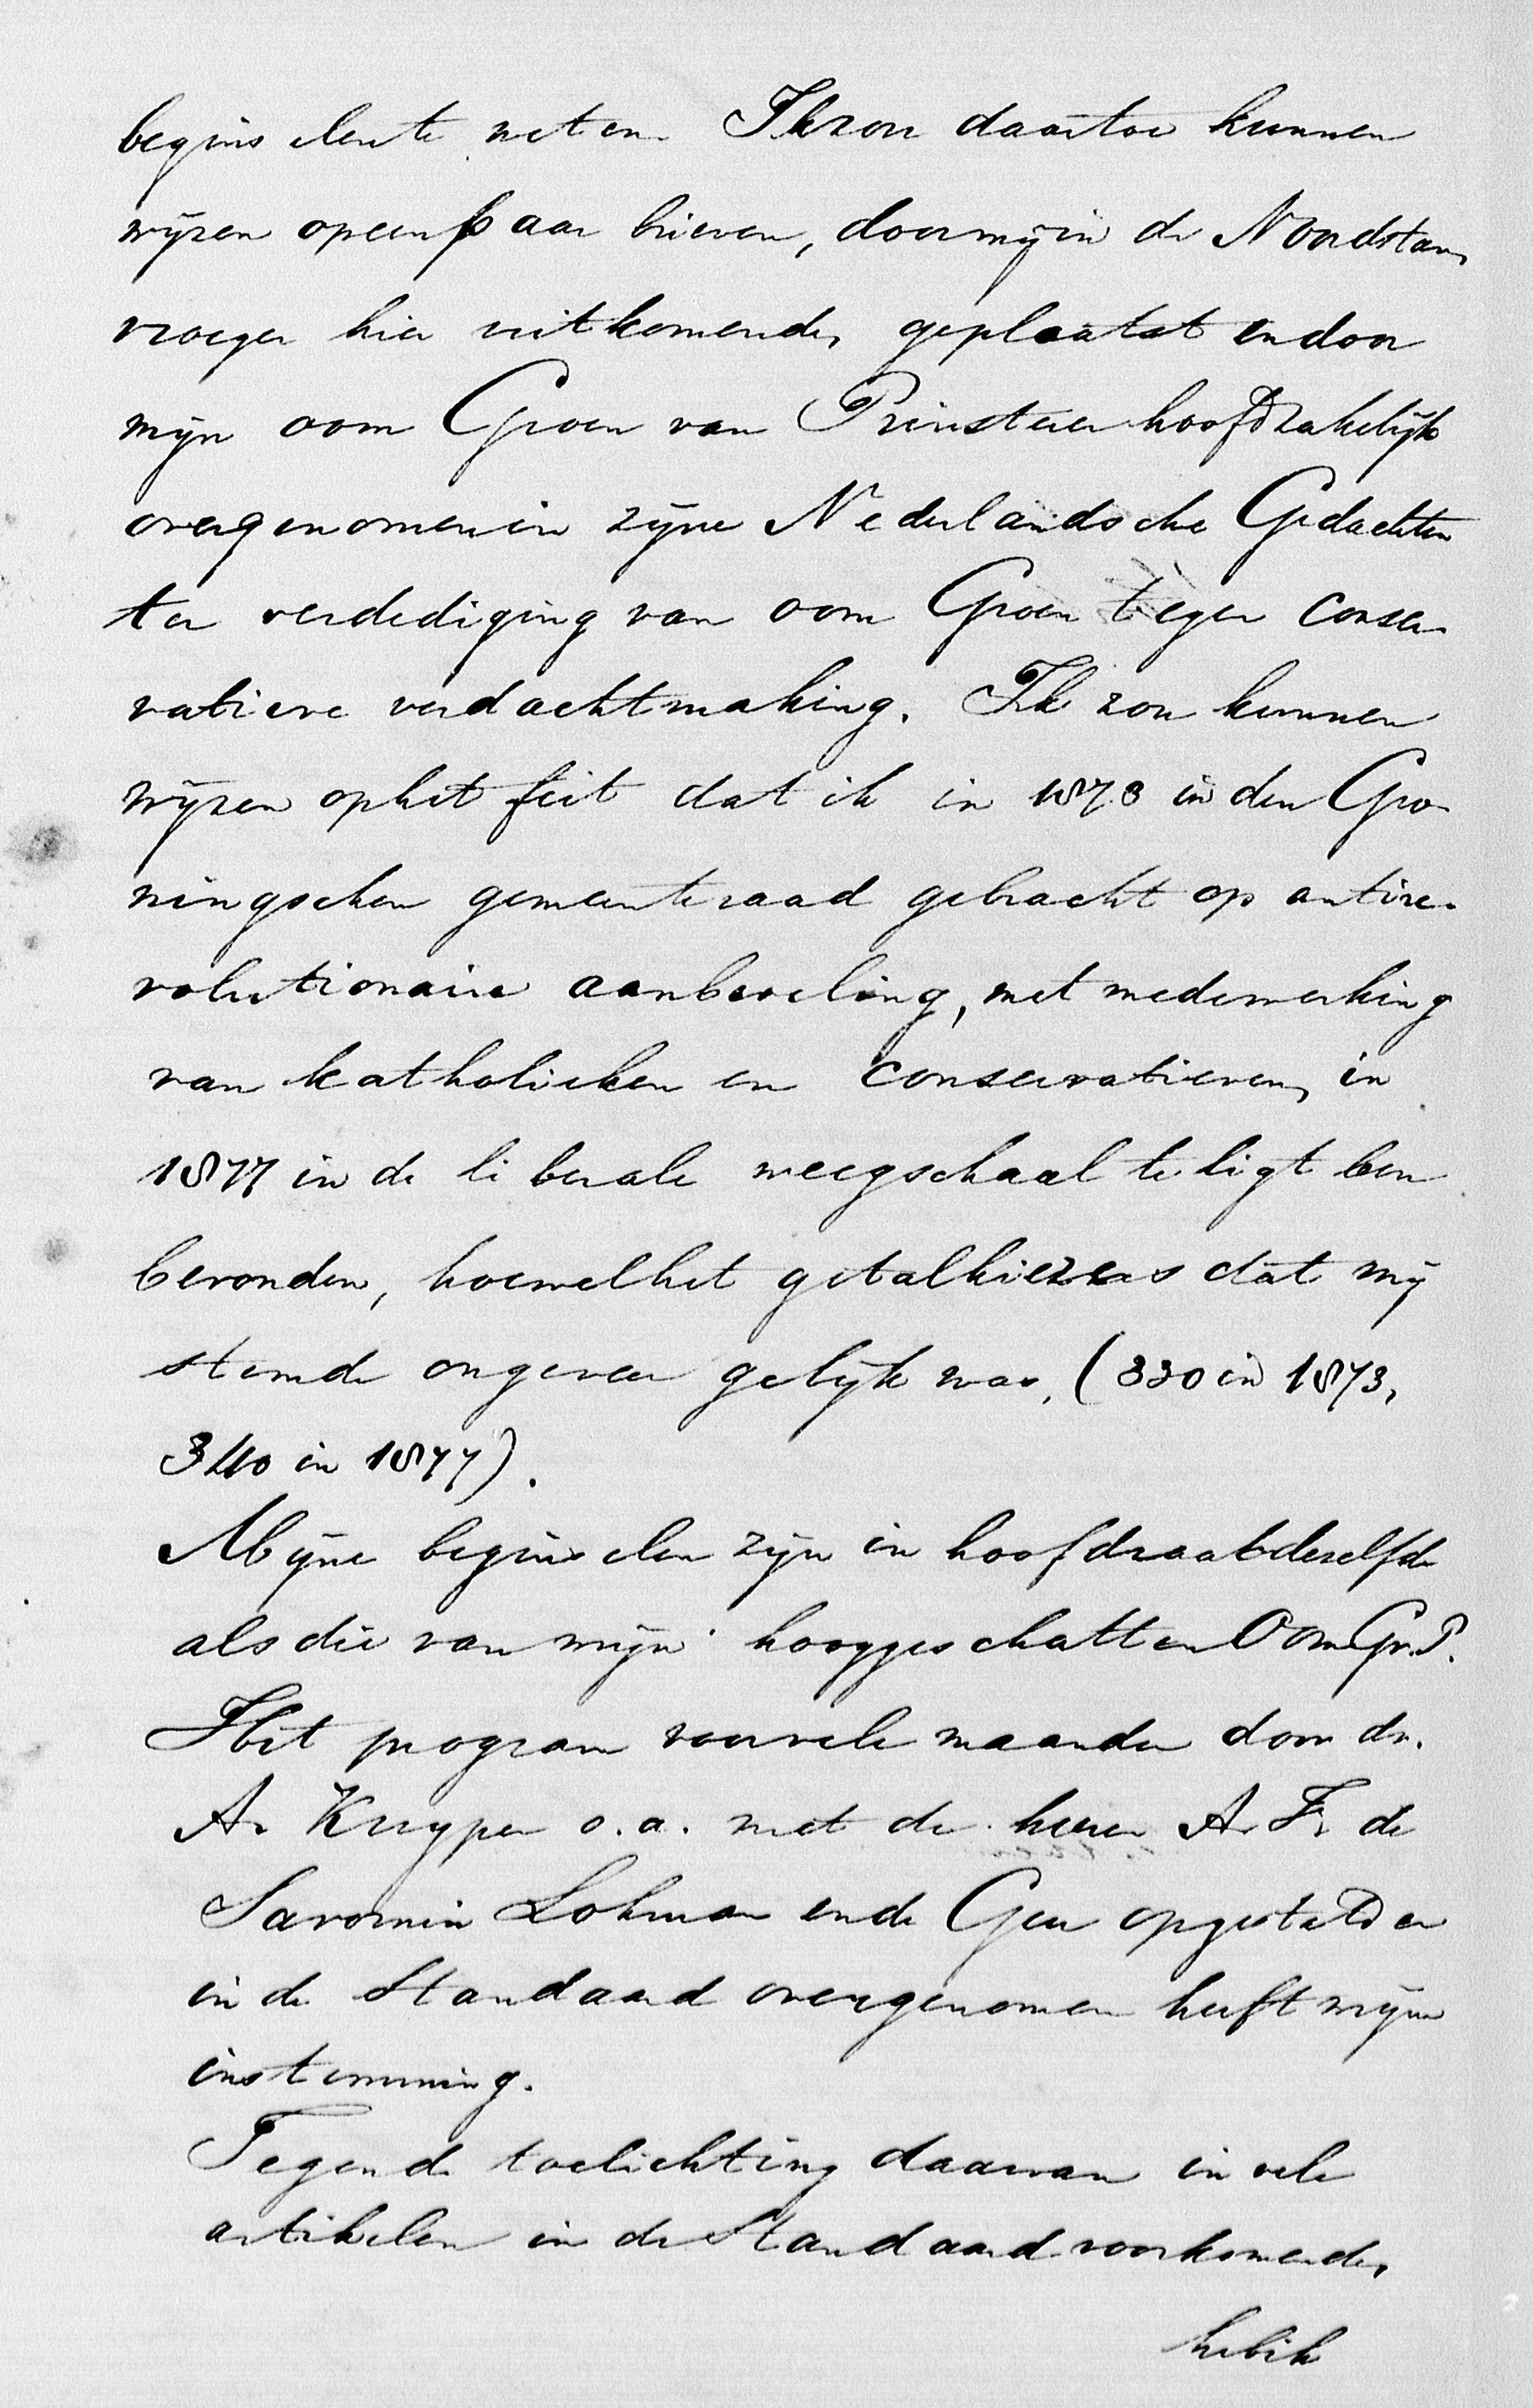 beginselen te weten. Ik zou daartoe kunnen
wijzen op een paar brieven, door mij in de Noordstar,
vroeger hier uitkomende, geplaatst en door
mijn oom Groen van Prinsterer hoofdzakelijk
overgenomen in zijne Nederlandsche Gedachten
ter verdediging van oom Groen tegen conser-
vatieve verdachtmaking. Ik zou kunnen
wijzen op het feit dat ik in 1873 in den Gro-
ningschen gemeenteraad gebracht op antire-
volutionaire aanbeveling, met medewerking
van katholieken en conservatieven, in
1877 in de liberale weegschaal te ligt ben
bevonden, hoewel het getal kiezers dat mij
stemde ongeveer gelijk was, (330 in 1873,
340 in 1877).
Mijne beginselen zijn in hoofdzaak dezelfde
als die van mijn hooggeschatten Oom Gr. P.
Het program voor vele maanden door dr.
A. Kuyper o.a. met de heeren A. F. de
Savornin Lohman en de Geer opgesteld en
in de Standaard overgenomen heeft mijne
instemming.
Tegen de toelichting daarvan in vele
artikelen in de Standaard voorkomende,
heb ik